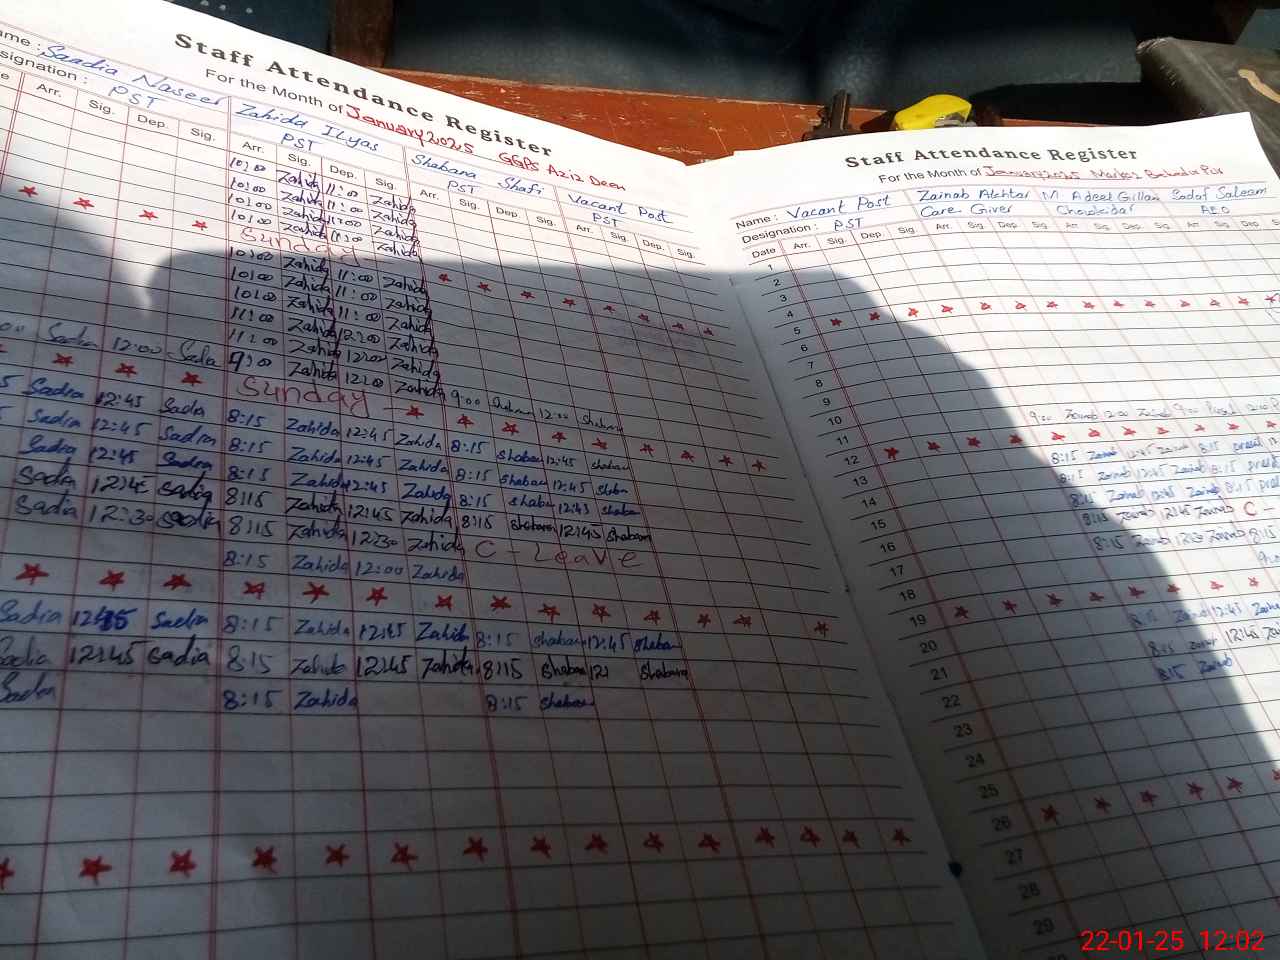 Staff Attendance Register
For the Month of January 2025 GGPS Aziz Deen
ame : Saadia Naseer Zahida Ilyas Shabana Shafi Vacant Post
signation : PST PST PST PST
e Arr. Sig. Dep. Sig. Arr. Sig. Dep. Sig. Arr. Sig. Dep. Sig. Arr. Sig. Dep. Sig.
10:00 Zahida 11:00 Zahida
10:00 Zahida 11:00 Zahida
10:00 Zahida 11:00 Zahida
10:00 Zahida 11:00 Zahida
Sunday
10:00 Zahida 11:00 Zahida
10:00 Zahida 11:00 Zahida
10:00 Zahida 11:00 Zahida
11:00 Zahida 12:00 Zahida
11:00 Zahida 12:00 Zahida
00 Sadia 12:00 Sadia 9:00 Zahida 12:00 Zahida 9:00 Shaban 12:00 Shaban
Sunday
5 Sadia 12:45 Sadia 8:15 Zahida 12:45 Zahida 8:15 Shaban 12:45 Shaban
Sadia 12:45 Sadia 8:15 Zahida 12:45 Zahida 8:15 Shaban 12:45 Shaban
Sadia 12:45 Sadia 8:15 Zahida 12:45 Zahida 8:15 Shaban 12:45 Shaban
Sadia Sadia 8:15 Zahida 12:45 Zahida 8:15 Shabana 12:45 Shabana
Sadia 12:30 Sadia 8:15 Zahida 12:30 Zahida C - Leave
8:15 Zahida 12:00 Zahida
Sadia 12:45 Sadia 8:15 Zahida 12:45 Zahida 8:15 Shaban 12:45 Shaban
Sadia 12:45 Sadia 8:15 Zahida 12:45 Zahida 8:15 Shaban 12: Shabana
Sadia 8:15 Zahida 8:15 Shaban
Staff Attendance Register
For the Month of January 2025 Markaz Bahadur Pur
Name : Vacant Post Zainab Akhtar M Adeel Gillan Sadaf Saleem
Designation : PST Care Giver Chowkidar AEO
Date Arr. Sig. Dep. Sig. Arr. Sig. Dep. Sig. Arr. Sig. Dep. Sig. Arr. Sig. Dep
1
2
3
4
5
6
7
8
9
10
11 9:00 Zainab 12:00 Zainab 9:00 12:00
12
13 8:15 Zainab 12:45 Zainab 8:15 present
14 8:15 Zainab 12:45 Zainab 8:15 present
15 8:15 Zainab 12:45 Zainab 8:15
16 8:15 Zainab 12:45 Zainab C -
17 8:15 Zainab 12:30 Zainab 8:15
18
19
20 8:15 Zainab 12:45 Zainab
21 8:15 Zainab 12:45
22 8:15 Zainab
23
24
25
26
27
28
29
22-01-25 12:02